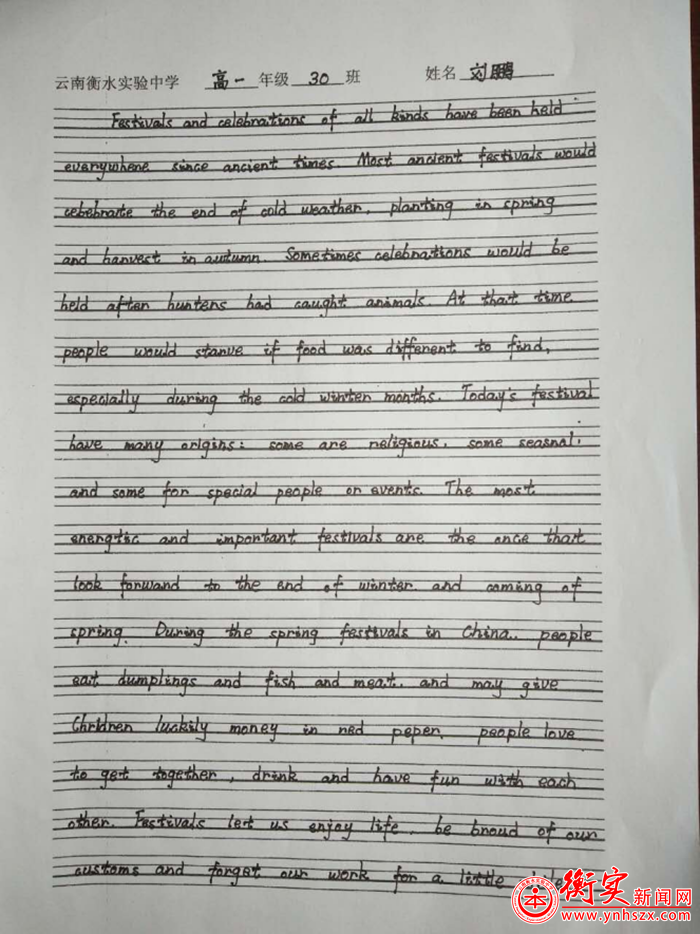 云南衡水实验中学 高一 年级 30 班 姓名 刘鹏
Festivals and celebrations of all kinds have been held
everywhere since ancient times. Most ancient festivals would
cebebrate the end of cold weather, planting in spring
and harvest in autumn. Sometimes celebrations would be
held after hunters had caught animals. At that time
people would starve if food was different to find,
especially during the cold winter months. Today's festival
have many origins: some are religious, some seasnal,
and some for special people or events. The most
energtic and important festivals are the once that
look forward to the end of winter and coming of
spring. During the spring festivals in China, people
eat dumplings and fish and meat, and may give
Chrldren luckily money in red peper. people love
to get together, drink and have fun with each
other. Festivals let us enjoy life, be broud of our
customs and forget our work for a little
衡实新闻网
www.ynhszx.com